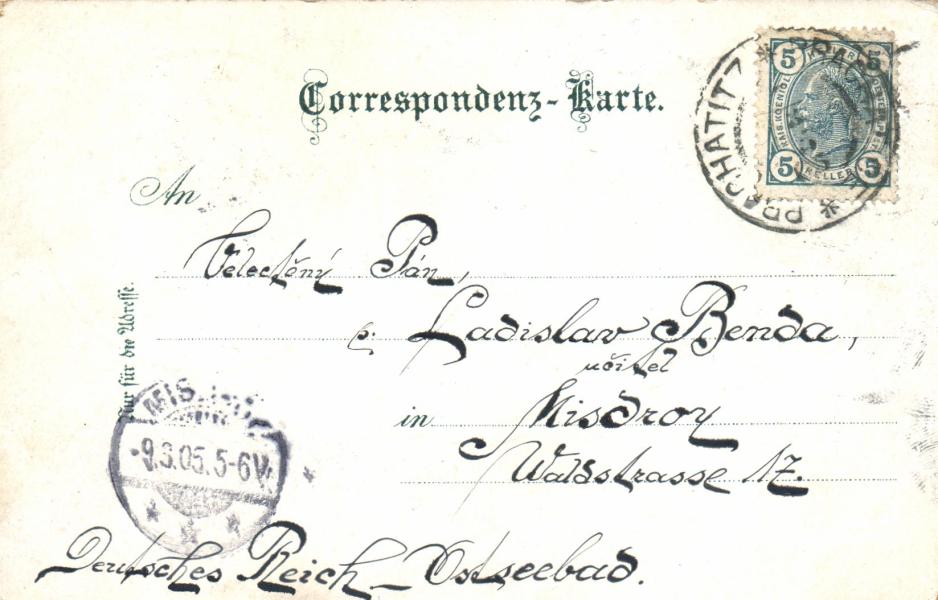 Correspondenz-Karte.
PRACHATITZ
5 5
KAIS. KOENIGL.
5 HELLER 5
An
Velectěný Pán,
p. Ladislav Benda,
učitel
in Misdroy
Waldstrasse 17.
Nur für die Adresse.
5-6V.
Deutsches Reich – Ostseebad.